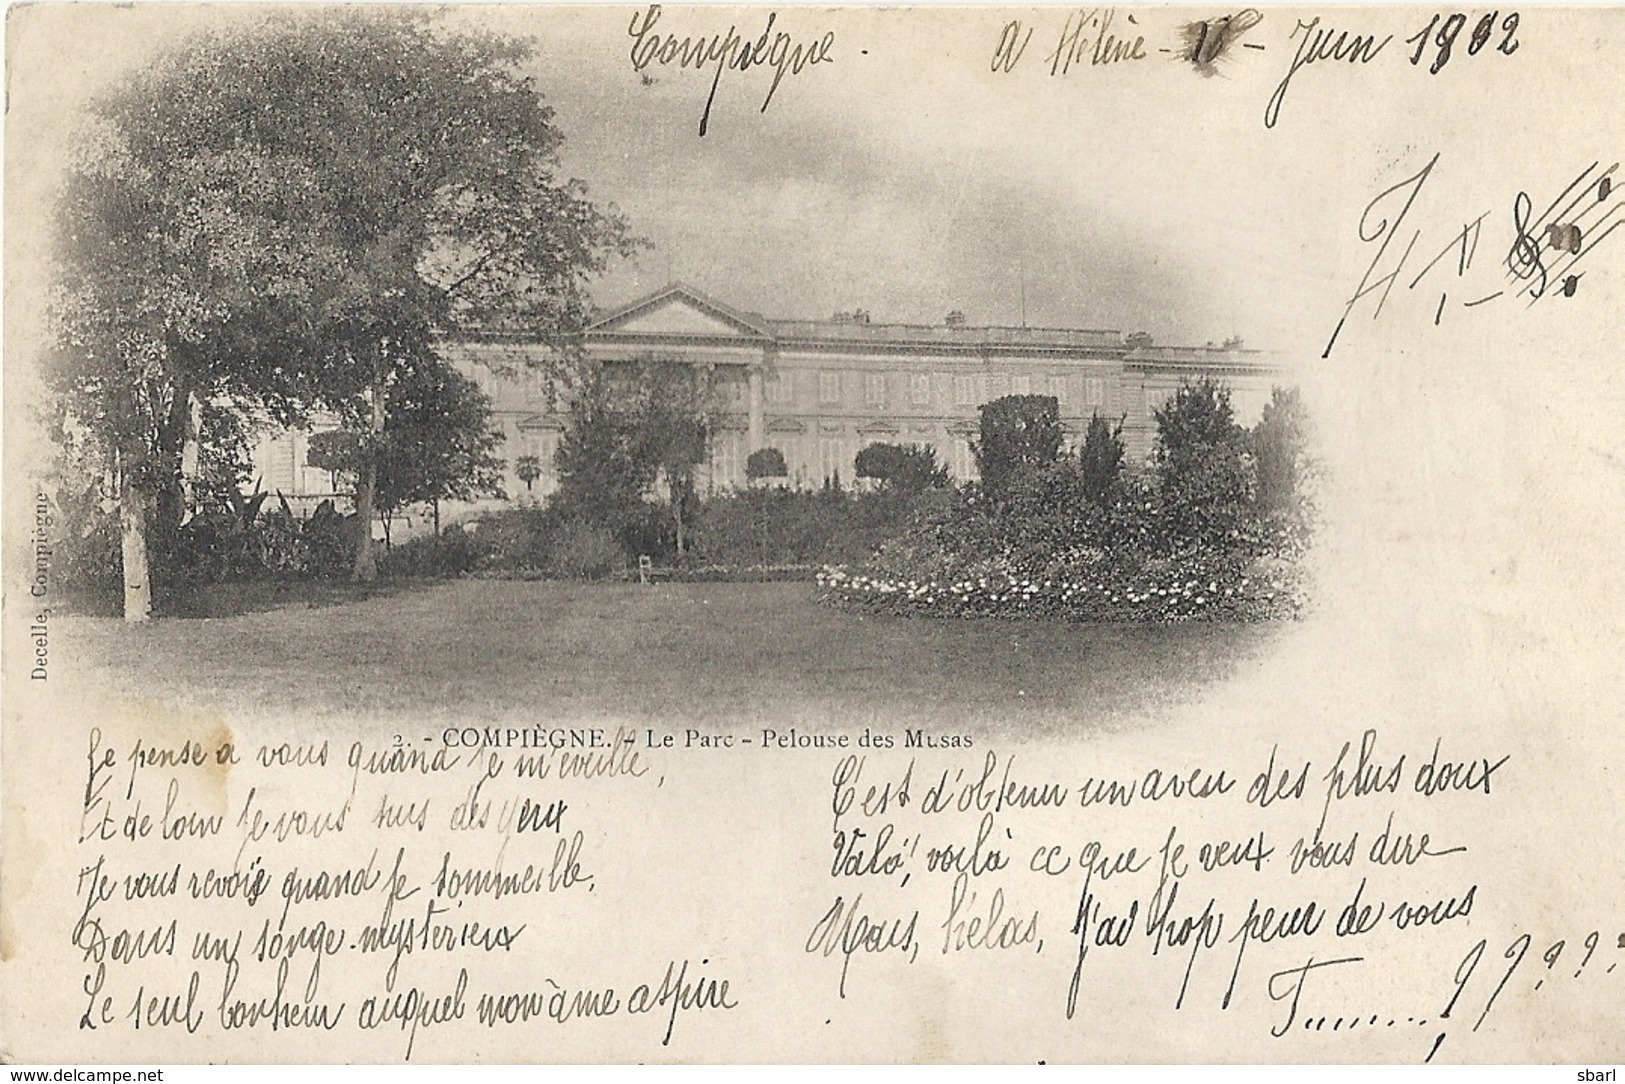 Compiègne. A Hélène - 10 - Juin 1902
Decelle, Compiègne
2. - COMPIÈGNE. - Le Parc - Pelouse des Musas
Je pense a vous quand je m'éveille,
Et de loin je vous suis des yeux
Je vous revois quand je sommeille,
Dans un songe mystérieux
Le seul bonheur auquel mon âme aspire
C'est d'obtenir un aveu des plus doux
Voilà, voilà ce que je veux vous dire
Mais, hélas, j'ai trop peur de vous
?????
delcampe.net
sbarl